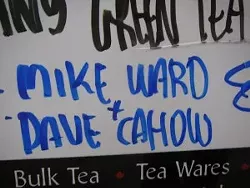 GREEN TEA
- MIKE WARD
+
- DAVE CAHOW
Bulk Tea • Tea Wares •